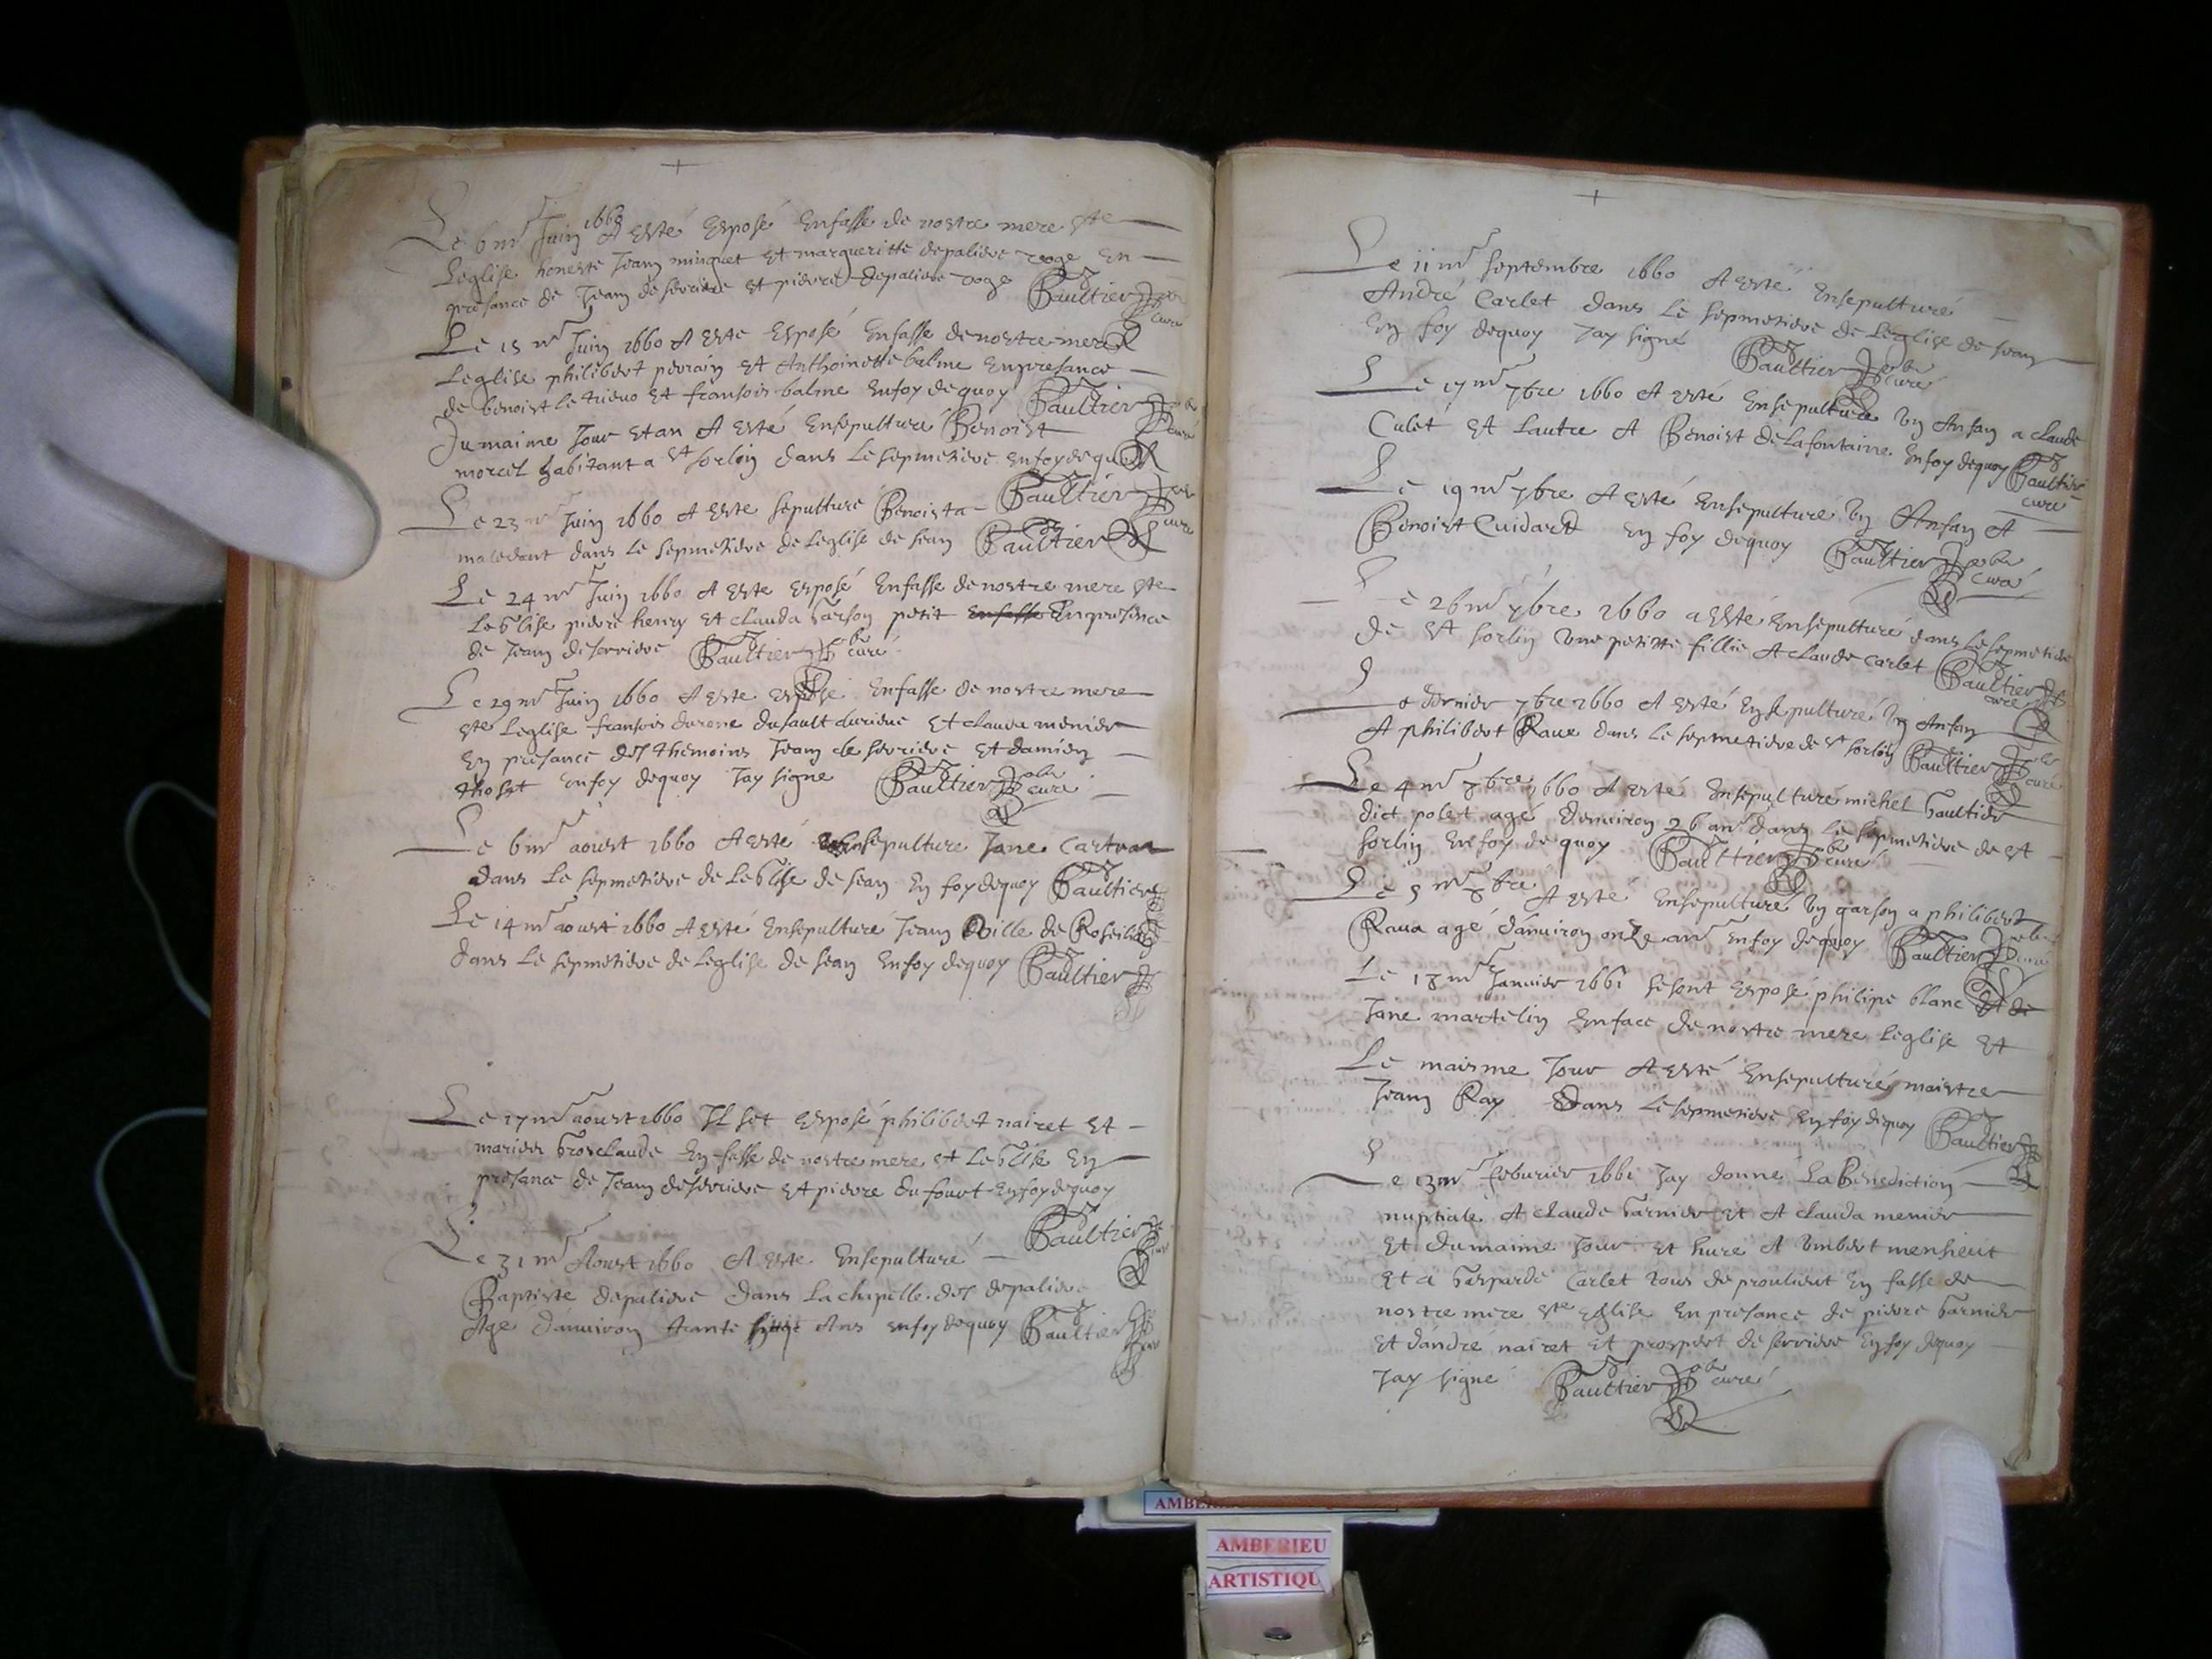 Le 6me Juin 1660 A Esté Esposé Enfasse de nostre mere ste
Leglise honeste Jean minguet Et margueritte depaliere En
presance de Jean deserriere Et pierre depaliere Gaultier pbr curé
Le 15me Juin 1660 A Este Esposé Enfasse denostre mere
Leglise philibert perrain Et Anthoinette balme Enpresance
de benoist Et fransois balme Enfoy dequoy Gaultier pbr curé
Du maime Jour Etan A Esté Ensepulturé Benoist
morcel habitant a St sorlin dans Le sepmetiere enfoy de quoy
Gaultier pbr curé
Le 23me Juin 1660 A Este sepulturé Benoista
dans Le sepmetiere de Leglise de sean Gaultier
Le 24me Juin 1660 A Este Esposé Enfasse denostre mere ste
LeGlise pierre henry Et clauda Garson petit Enfasse Enpresence
de Jean deserriere Gaultier pbr curé
Le 29me Juin 1660 A Este Espose Enfasse de nostre mere
ste Leglise fransois Et clauda menier
En presance des themoins Jean de serriere Et damien
Enfoy dequoy Jay signe Gaultier pbr curé
Le 6me aoust 1660 A Esté Ensepulture Jane
dans Le sepmetiere de LeGlise de sean En foy dequoy Gaultier
Le 14me aoust 1660 A Esté Ensepulturé Jean de
dans Le sepmetiere de Leglise de sean Enfoy dequoy Gaultier
Le 27me aoust 1660 Il set Esposé philibert nairet Et
Grosclaude En fasse de nostre mere st LeGlise En
presance de Jean deserriere Et pierre du fourt Enfoy dequoy
Gaultier
Le 31me Aoust 1660 A Este Ensepulturé
Baptiste depaliere dans La chapelle des depaliere
Age danviron trante Ans enfoy dequoy Gaultier
Le 11me septembre 1660 A Esté Ensepulturé
André Carlet dans Le sepmetiere de Leglise de sean
En foy dequoy Jay signé Gaultier pbr curé
Le 17me 7bre 1660 A Esté Ensepulturé Un Anfan a claude
Culet Et Lautre A Benoist deLafontaine Enfoy dequoy Gaultier
curé
Le 19me 7bre A Esté Ensepulturé Un Anfan A
Benoist Cuidard En foy dequoy Gaultier pbr curé
Le 26me 7bre 1660 a Esté Ensepulturé dans Le sepmetiere
de St sorlin Une petitte fillie A claude carlet Gaultier
curé
Le dernier 7bre 1660 A Esté Ensepulturé Un Anfan
A philibert Raux dans Le sepmetiere de st sorlin Gaultier pbr curé
Le 4me 8bre 1660 A Esté Ensepulturé michel Gaultier
dict polet agé denviron 26 ans dans Le sepmetiere de st
sorlin Enfoy de quoy Gaultier pbr curé
Le 5me 8bre A Esté Ensepulturé Un garson a philibert
Raux agé danviron onze ans Enfoy dequoy Gaultier pbr curé
Le 18me Janvier 1661 se sont Esposé philipe blanc Et de
Jane martelin Enface de nostre mere Leglise Et
Le maisme Jour A Esté Ensepulturé maistre
Jean Ray Dans Le sepmetiere En foy dequoy Gaultier
Le 13me feburier 1661 Jay donne La Benediction
nuptiale A claude Garnier Et A clauda menier
Et du maime Jour Et hure A Umbert mensieut
Et a Gasparde Carlet tous de proulieut En fasse de
nostre mere ste Eglise En presance de pierre Garnier
Et dandre nairet Et prospert de serriere En foy dequoy
Jay signé Gaultier pbr curé
AMBERIEU
ARTISTIQU